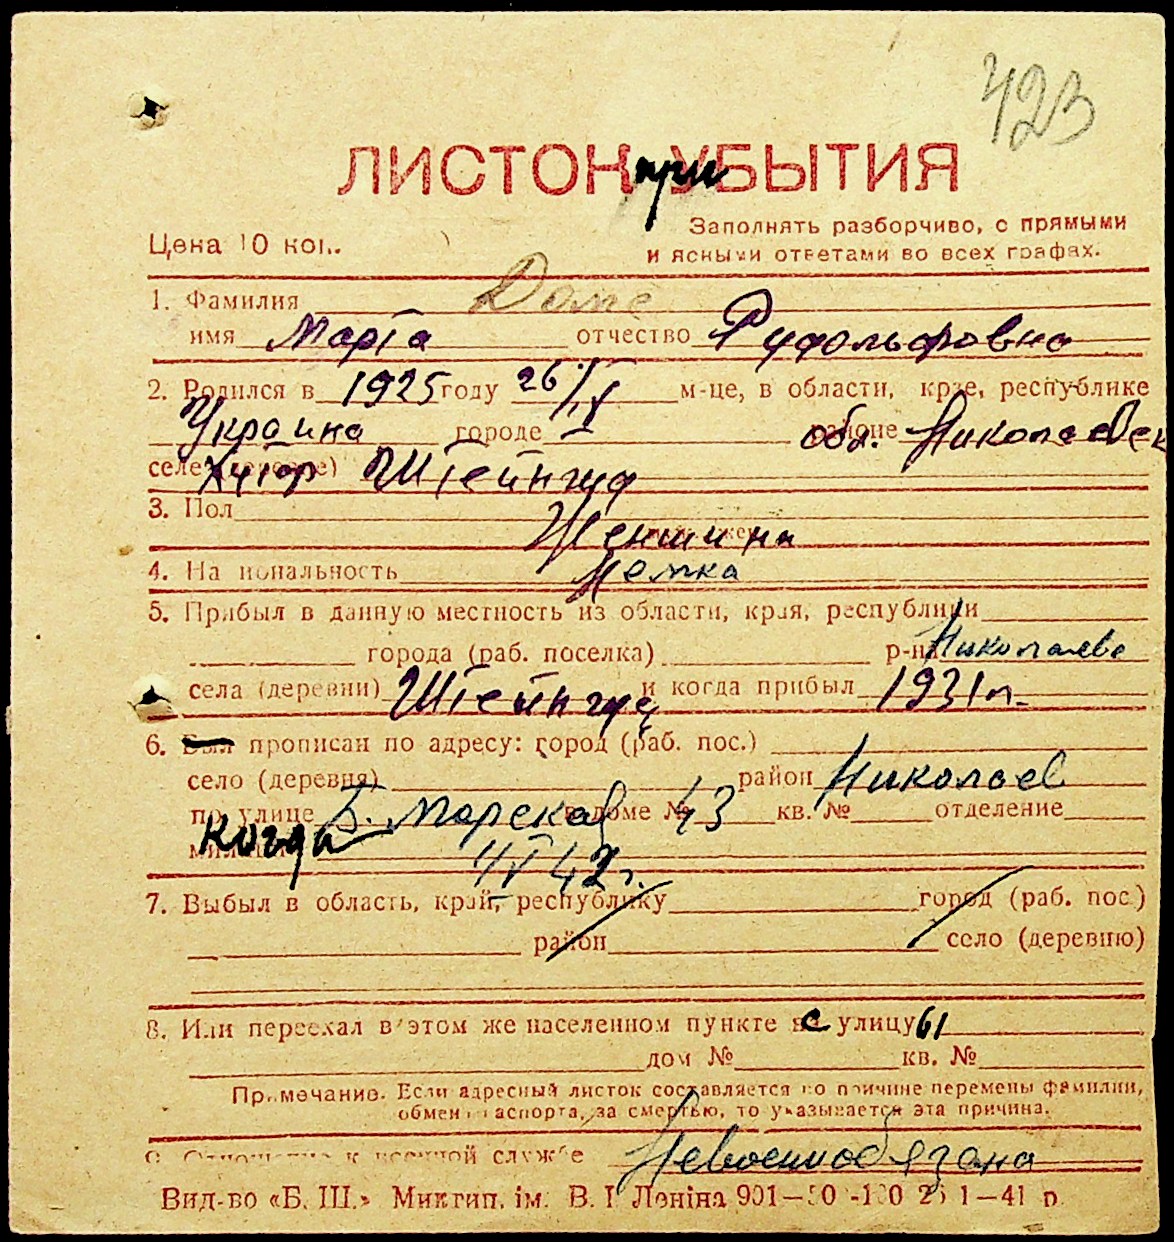 423
ЛИСТОК при УБЫТИЯ
Заполнять разборчиво, с прямыми
Цена 10 коп. и ясными ответами во всех графах.
1. Фамилия
имя Марта отчество Рудольфовна
2. Родился в 1925 году 26/IV м-це, в области, крае, республике
Украина городе обл. Николаевск
селе хутор Штейнгуд
3. Пол Женщина
4. Национальность Немка
5. Прибыл в данную местность из области, края, республики
города (раб. поселка) р-на Николаев
села (деревни) Штейнгуд и когда прибыл 1931 г.
6. Был прописан по адресу: город (раб. пос.)
село (деревня) район Николаев
по улице Б. Морская в доме № 43 кв. № отделение
милиции когда 4/V 42 г.
7. Выбыл в область, край, республику город (раб. пос.)
район село (деревню)
8. Или переехал в этом же населенном пункте с улицу 61
дом № кв. №
Примечание. Если адресный листок составляется по причине перемены фамилии,
обмена паспорта, за смертью, то указывается эта причина.
9. Отношение к военной службе Невоеннообязана
Вид-во «Б. Ш.» Миктип. ім. В. І. Леніна 901—50